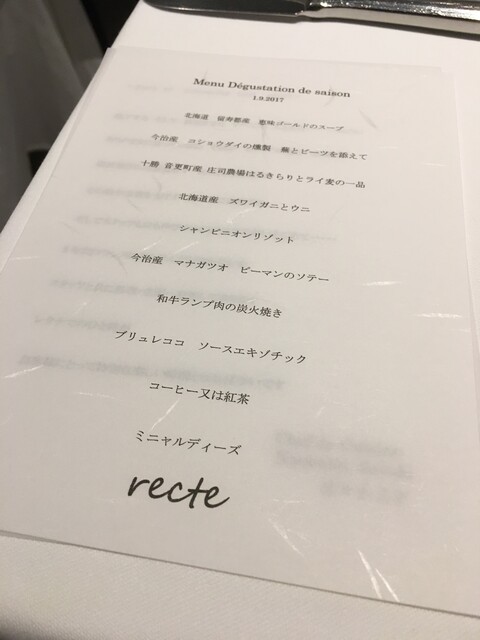 Menu Dégustation de saison
1.9.2017
北海道 留寿都産 恵味ゴールドのスープ
今治産 コショウダイの燻製 蕪とビーツを添えて
十勝 音更町産 庄司農場はるきらりとライ麦の一品
北海道産 ズワイガニとウニ
シャンピニオンリゾット
今治産 マナガツオ ピーマンのソテー
和牛ランプ肉の炭火焼き
ブリュレココ ソースエキゾチック
コーヒー又は紅茶
ミニャルディーズ
recte